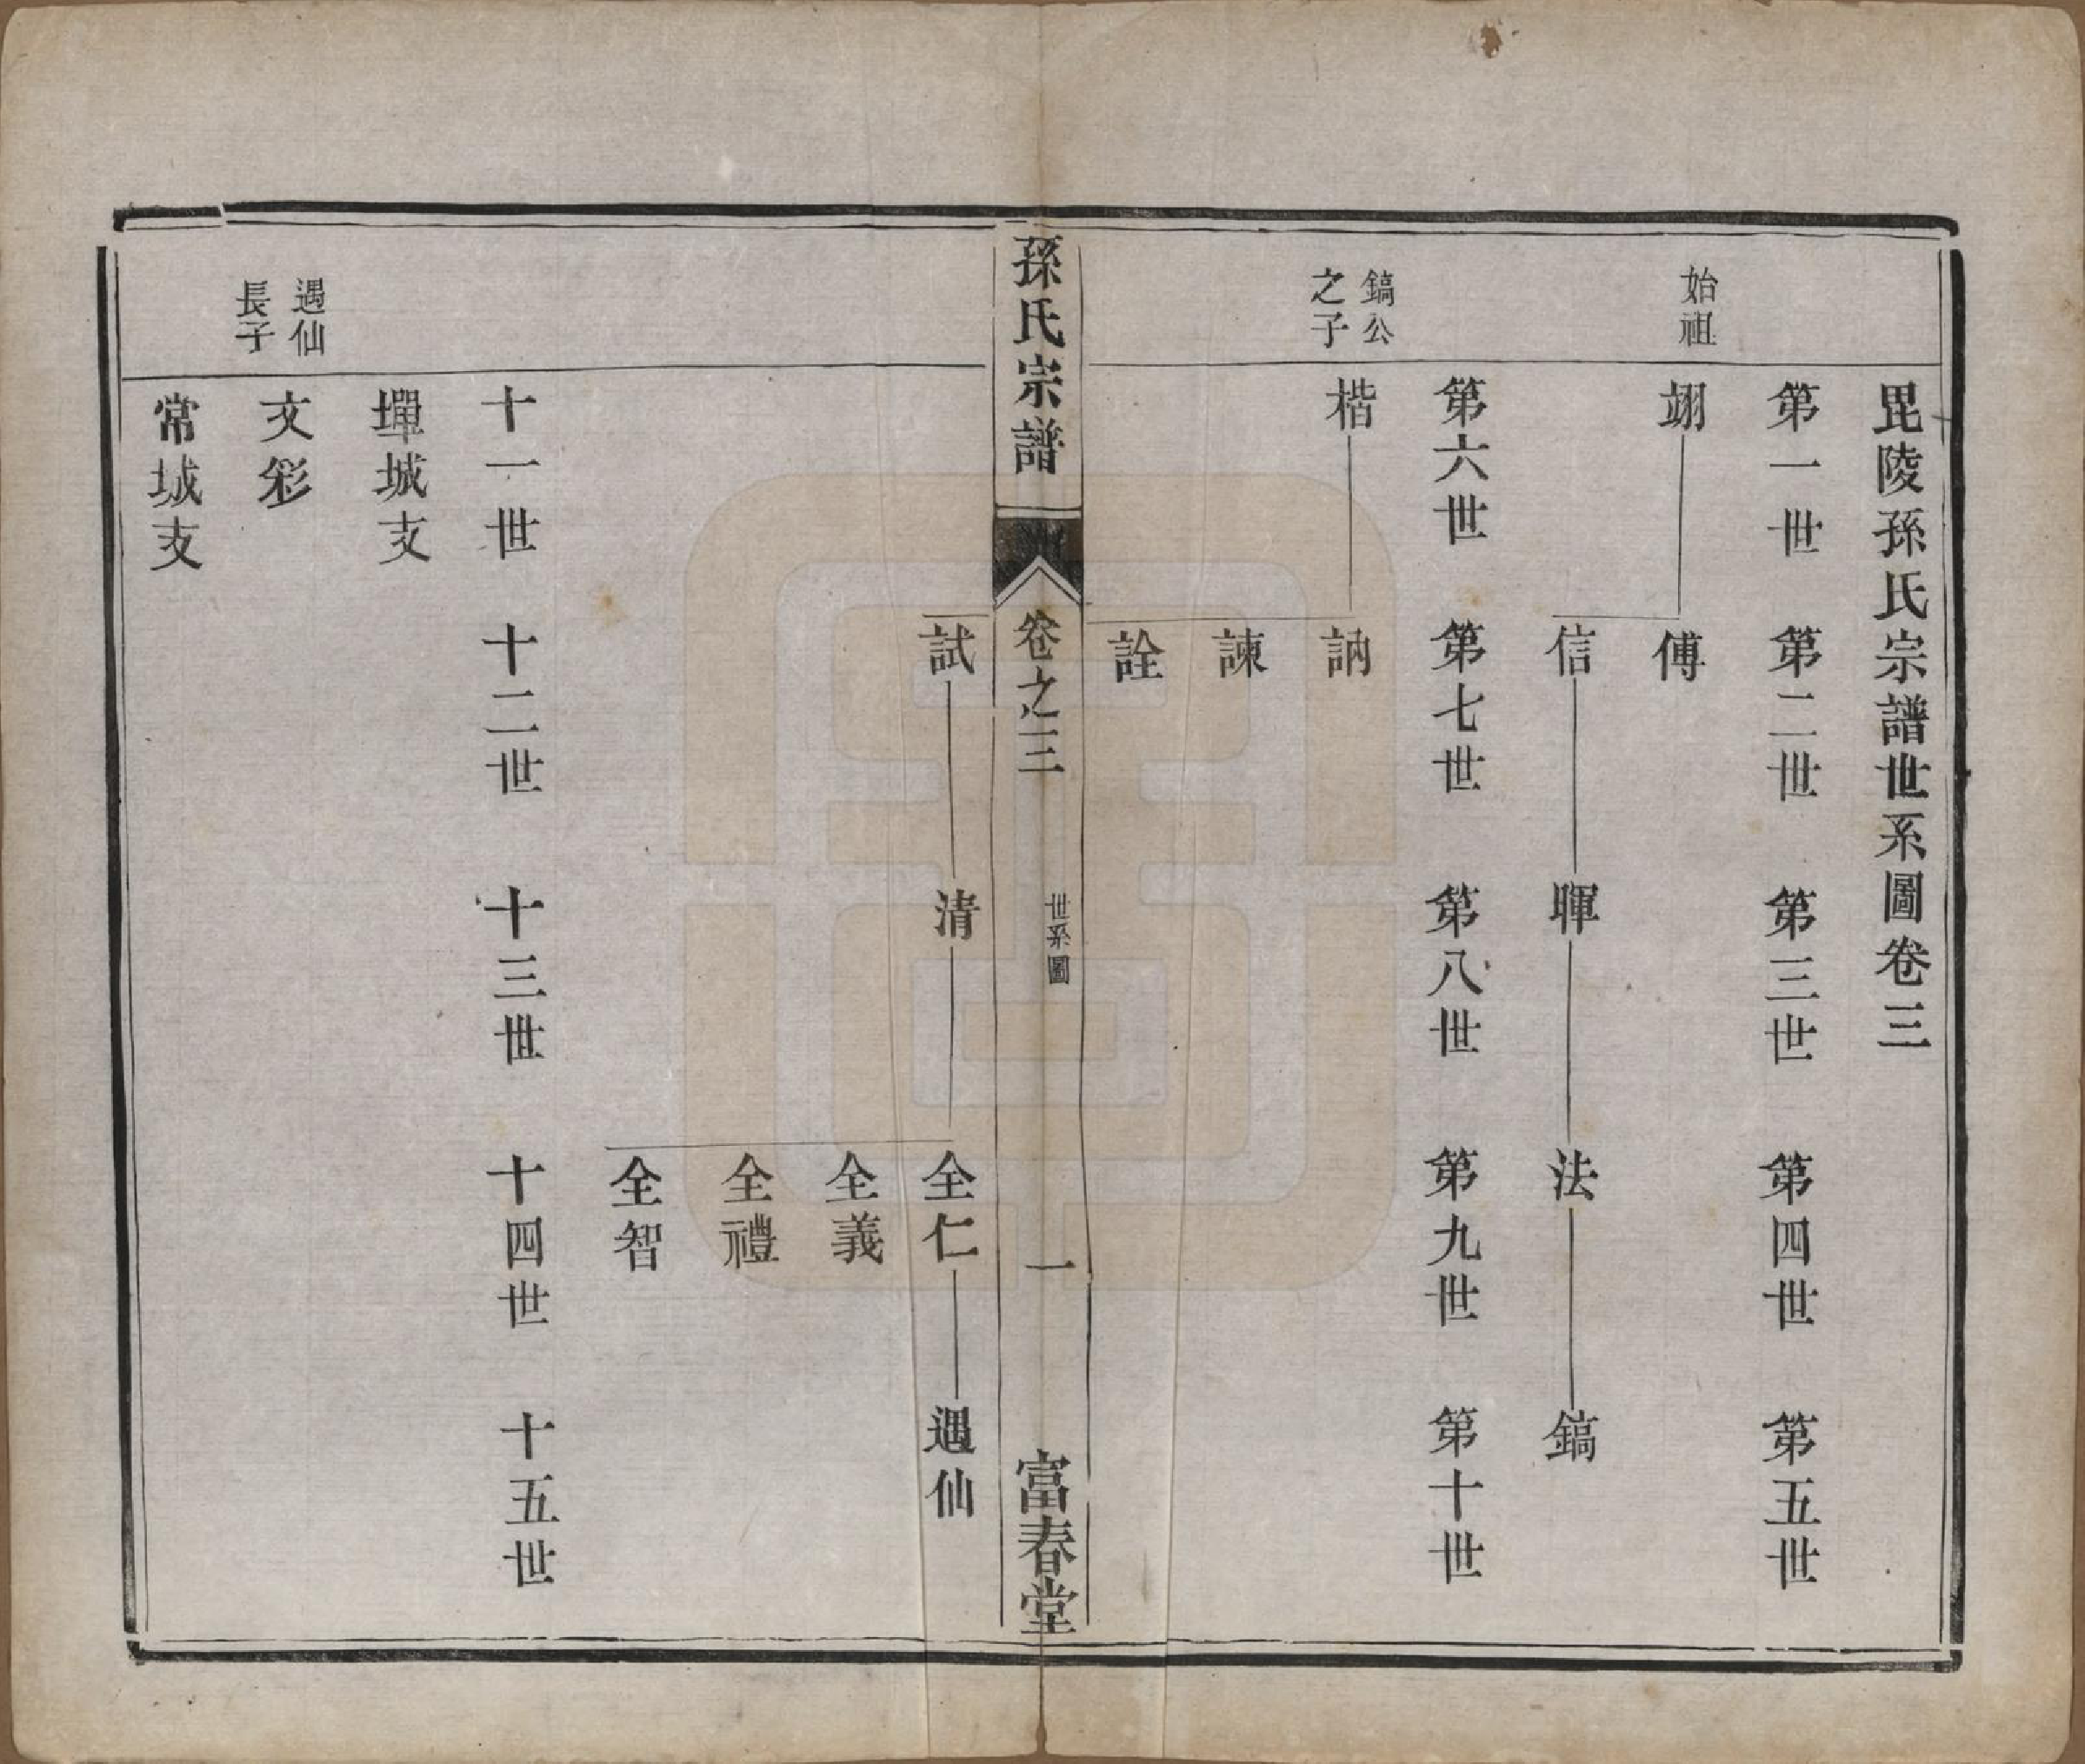 毘陵孫氏宗譜世系圖卷三
第一世 第二世 第三世 第四世 第五世
始祖
翊 傅
信 暉 法 鎬
第六世 第七世 第八世 第九世 第十世
鎬公
之子
楷 訥
諫
詮
孫氏宗譜 卷之三 世系圖 一 富春堂
試 清 全仁 遇仙
全義
全禮
全智
十一世 十二世 十三世 十四世 十五世
墠城支
遇仙
長子
文彩
常城支